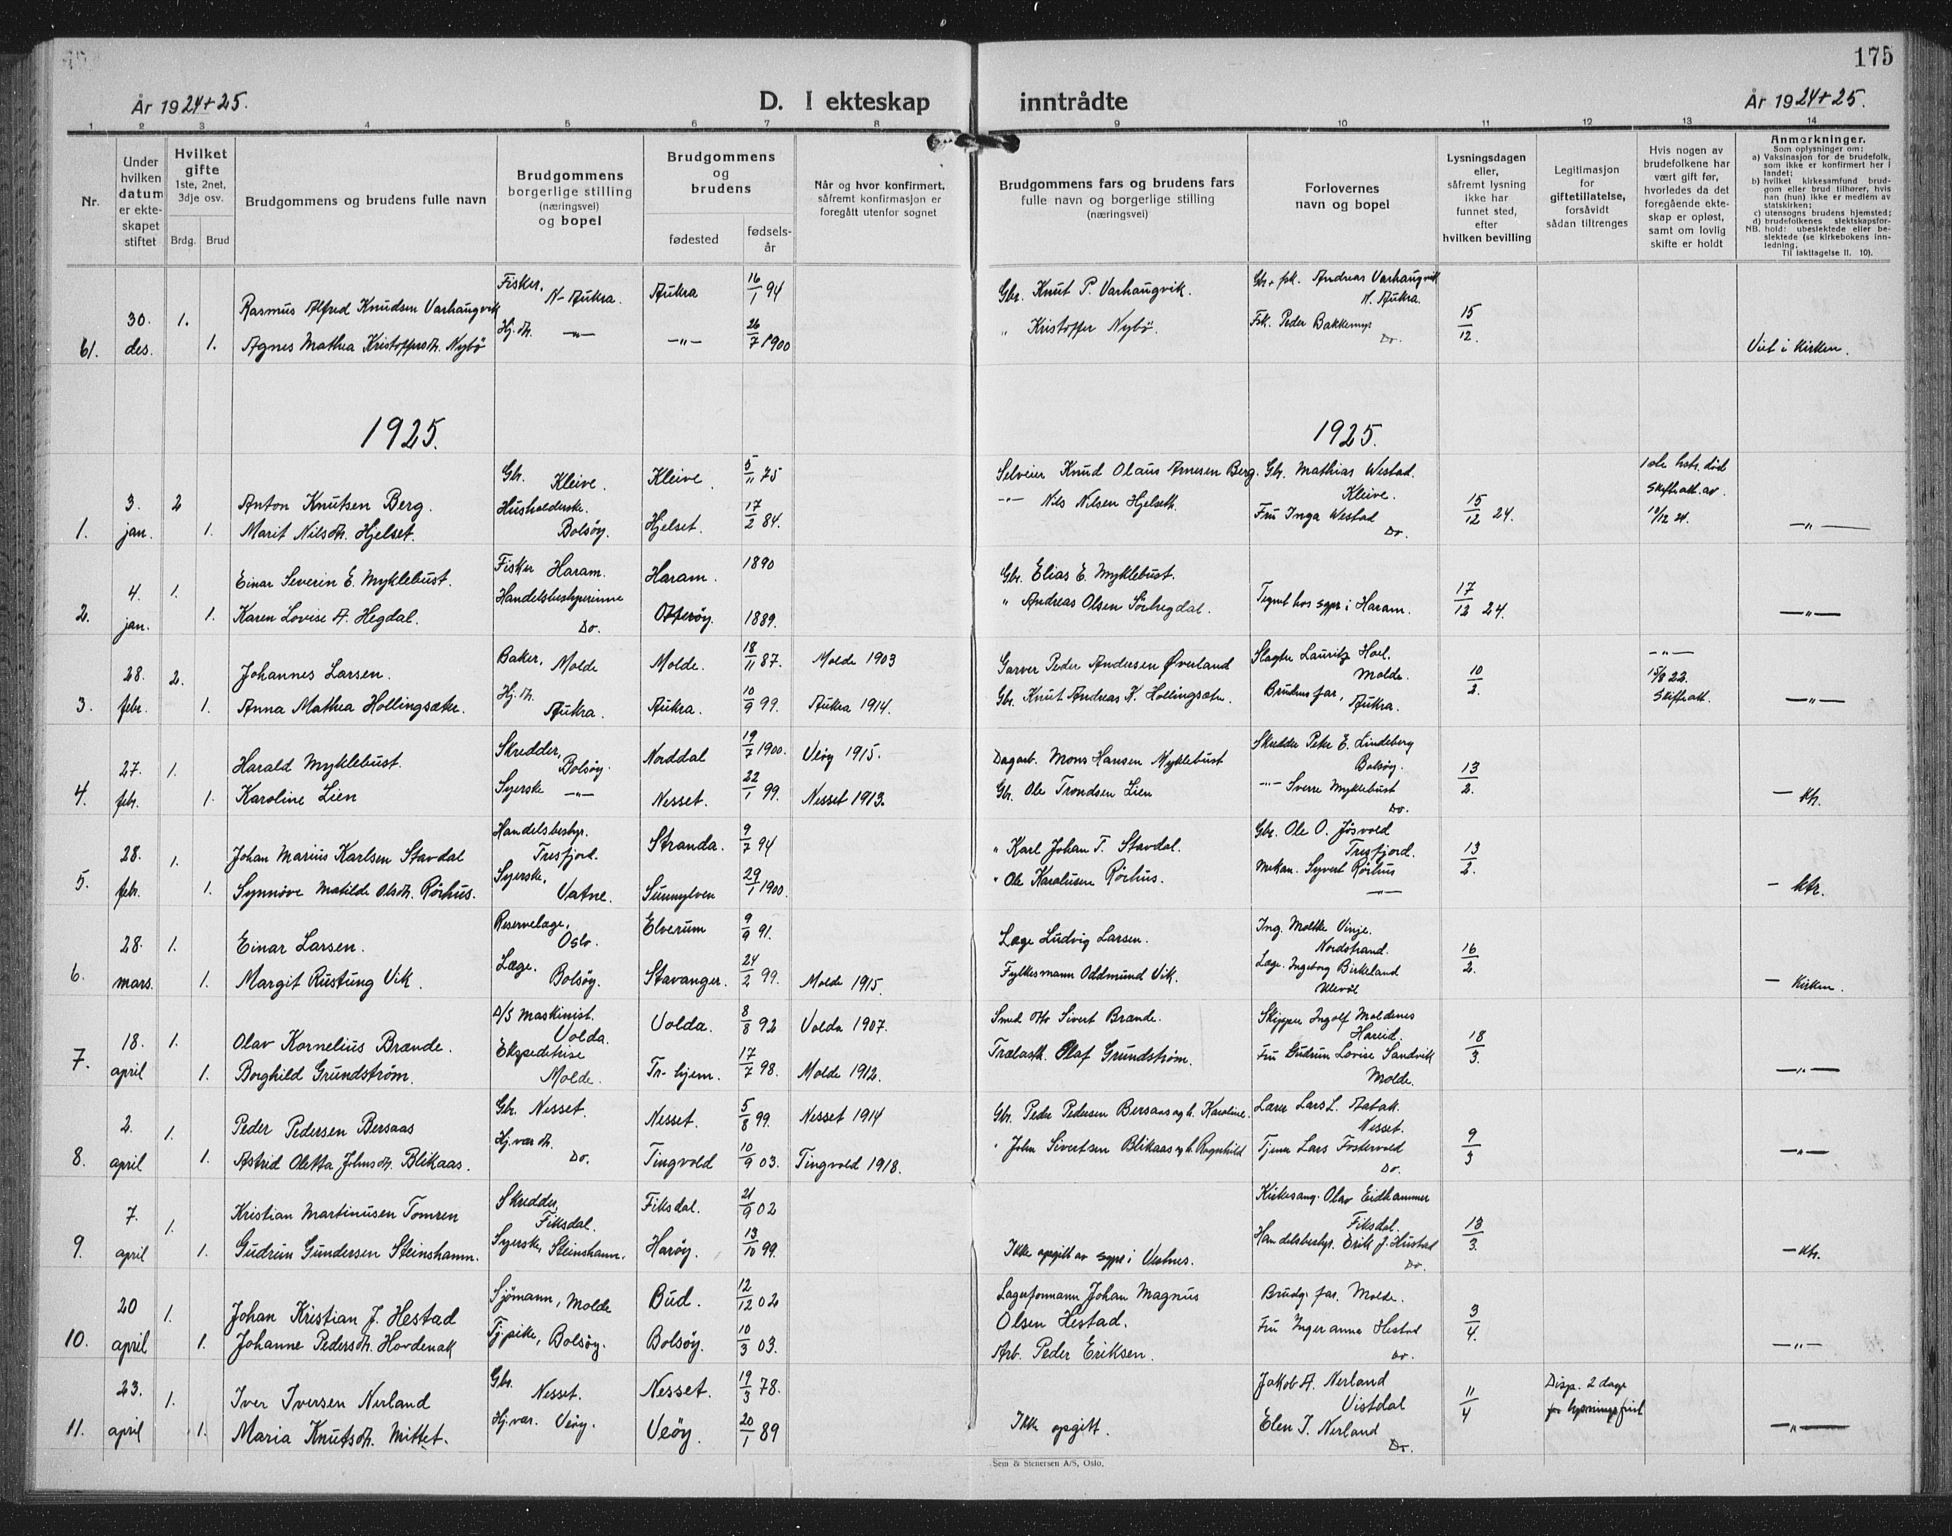 175
År 1924+25.
D. I ekteskap inntrådte
År 1924+25.
1 2 3 4 5 6 7 8 9 10 11 12 13 14
Nr.
Under hvilken datum er ekteskapet stiftet
Hvilket gifte 1ste, 2net, 3dje osv.
Brdg. Brud
Brudgommens og brudens fulle navn
Brudgommens borgerlige stilling (næringsvei) og bopel
Brudgommens og brudens
fødested
fødselsår
Når og hvor konfirmert, såfremt konfirmasjon er foregått utenfor sognet
Brudgommens fars og brudens fars fulle navn og borgerlige stilling (næringsvei)
Forlovernes navn og bopel
Lysningsdagen eller, såfremt lysning ikke har funnet sted, efter hvilken bevilling
Legitimasjon for giftetillatelse, forsåvidt sådan tiltrenges
Hvis nogen av brudefolkene har vært gift før, hvorledes da det foregående ekteskap er opløst, samt om lovlig skifte er holdt
Anmerkninger.
Som oplysninger om:
a) Vaksinasjon for de brudefolk, som ikke er konfirmert her i landet;
b) hvilket kirkesamfund brudgom eller brud tilhører, hvis han (hun) ikke er medlem av statskirken;
c) utensogns brudens hjemsted;
d) brudefolkenes slektskapsforhold: ubeslektede eller beslektede (se kirkebokens innledning,
NB.
Til iakttagelse II. 10).
61. 30. des. 1. Rasmus Alfred Knudsen Varhaugvik Fisker, N-Aukra. Aukra 16/1 94 Gbr. Knut P. Varhaugvik. Andreas Varhaugvik N. Aukra 15/12.
1. Agnes Mathea Kristoffersdt. Nybö Hj.dt. —"— —"— 26/7 1900 " Kristoffer Nybö. Fsk. Peder Bakkemyr Do. Viet i kirken.
1925. 1925.
1. 3. jan. 2 Anton Knutsen Berg. Gbr. Kleive. Kleive. 5/11 75 Selveier Knud Olaus Arnesen Berg. Gbr. Mathias Westad Kleive. 15/12 24. 10/12 24.
1. Marit Nilsdt. Hjelset. Husholderske. Bolsöy. Hjelset. 17/2 84. —"— Nils Nilsen Hjelseth. Fru Inga Westad Do. —"—
2. 4. jan. 1. Einar Severin E. Myklebust. Fisker Haram. Haram. 1890 Gbr. Elias E. Myklebust. 17/12 24
1. Karen Lovise A. Hegdal. Handelsbestyrerinne Do. Otteröy. 1889. " Andreas Olsen Sörhegdal. Tegnet hos sgpr i Haram. —"—
3. 28. febr. 2. Johannes Larsen. Baker, Molde Molde. 18/11 87. Molde 1903 Garver Peder Andersen Øverland Slagter Lauritz Hoel. Molde. 10/2. —"— 15/8 22. Skifteatt.
1. Anna Mathea Hollingsæter. Hj.dt. Aukra. Aukra. 10/9 99. Aukra 1914. Gbr. Knut Andreas K. Hollingsæter. Brudens far, Aukra. —"—
4. 27. febr. 1. Harald Myklebust. Skredder, Bolsöy. Norddal 19/7 1900. Veöy 1915. Dagarb. Mons Hansen Myklebust Skredder Peter E. Lindeberg Bolsöy. 13/2.
1. Karoline Lien Syerske —"— Nesset. 22/1 99. Nesset 1913. Gbr. Ole Trondsen Lien —"— Sverre Myklebust Do. — ktr.
5. 28. febr. 1. Johan Marius Karlsen Stavdal Handelsbestyr. Tresfjord. Stranda. 9/7 94 " Karl Johan T. Stavdal. Gbr. Ole O. Jösvold Tresfjord. 13/2.
1. Synnöve Matilde Olsdt. Rörhus. Syerske, Vatne. Sunnylven 29/1 1900. " Ole Karolusen Rörhus. Mekan. Syvert Rörhus —"— — ktr.
6. 28. mars. 1. Einar Larsen. Reservelæge, Oslo. Elverum 9/9 91. Læge Ludvig Larsen. Ing. Moltke Vinje. Nordstrand. 16/2.
1. Margit Rustung Vik. Læge. Bolsöy. Stavanger. 24/2 99. Molde 1915. Fylkesmann Oddmund Vik. Læge. Ingeborg Birkeland Ulevål — Kirken.
7. 18. april 1. Olav Kornelius Brænde. D/S maskinist. Volda. Volda. 8/8 92 Volda 1907. Smed Otto Sivert Brænde. Skipper Ingolf Moldenes Hareid. 18/3.
1. Borghild Grundström. Ekspeditrise Molde. Tr-hjem. 17/7 98. Molde 1912. Trælastk. Olaf Grundström. Fru Gudrun Lovise Sandvik Molde. —"—
8. 2. april 1. Peder Pedersen Bersaas Gbr. Nesset. Nesset. 5/8 99. Nesset 1914 Gbr. Peder Pedersen Bersaas og h. Karoline. Lærer Lars L. Aatak Nesset. 9/3
1. Astrid Oletta Johnsdt. Blikaas. Hj.vær.dt. Do. Tingvold 10/9 03. Tingvold 1918. " John Sivertsen Blikaas og h. Ragnhild Tjener Lars Fostervold Do. —"—
9. 7. april 1. Kristian Martinusen Tomren Skredder, Fiksdal. Fiksdal. 21/9 02 Kirkesang. Olav Eidhammer Fiksdal. 13/3.
1. Gudrun Gundersen Steinshamn. Syerske, Steinshamn. Haröy. 13/10 99. Ikke opgitt av sgpr i Vestnes. Handelsbestyr. Erik J. Hustad Do. — ktr.
10. 20 april 1. Johan Kristian J. Hestad Sjömann, Molde Bud. 12/12 02 Lagerformann Johan Magnus Olsen Hestad. Brudg. far. Molde. 3/4.
1. Johanne Pedersdt. Hovdenak Tj.pike, Bolsöy. Bolsöy. 10/3 03. Arb. Peder Eriksen. Fru Ingeranna Hestad Do. —"—
11. 23. april 1. Iver Iversen Nerland Gbr. Nesset. Nesset. 19/3 78. Jakob A. Nerland Vistdal 11/4 Disp. 2 dage for lysningsfrist
1. Maria Knutsdt. Mittet. Hj.vær. Veöy. Veöy. 20/1 89 Ikke opgitt. Elen I. Nerland Do. —"—
Sem & Stenersen A/S, Oslo.